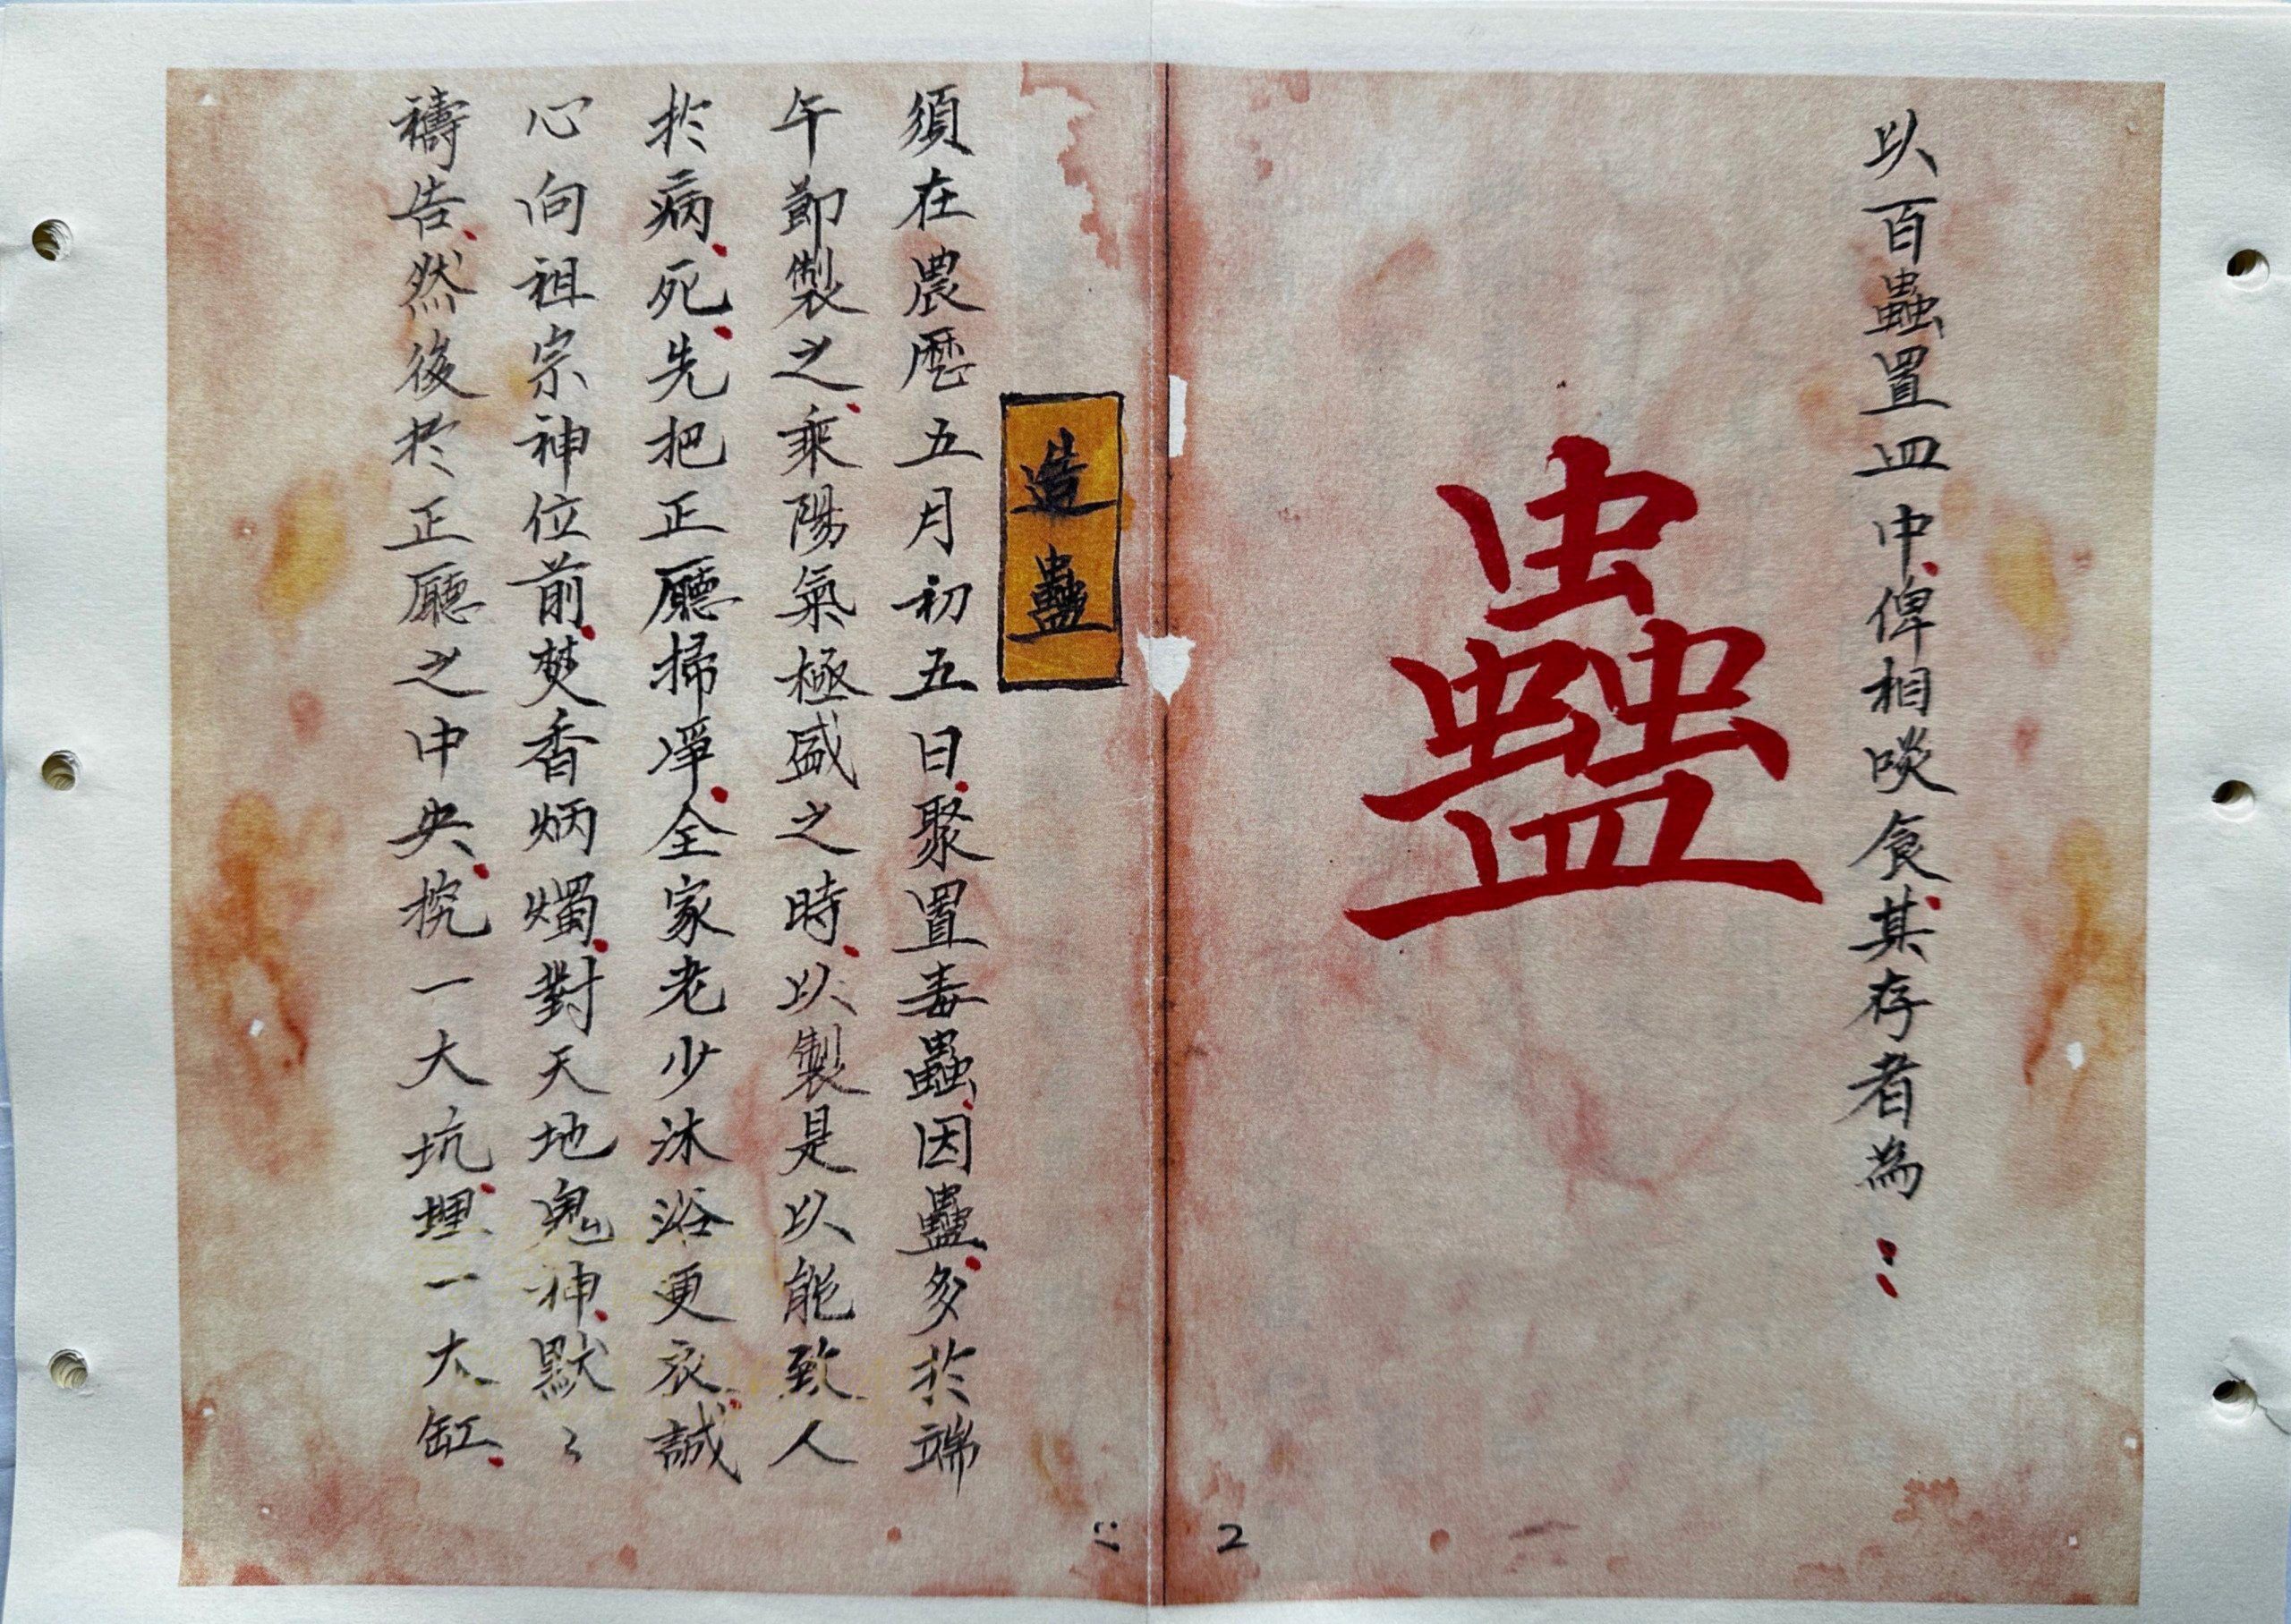 以百蟲置皿中.俾相啖食.其存者為:
蠱
造蠱
須在農歷五月初五日.聚置毒蟲.因蠱.多於端
午節製之.乘陽氣極盛之時.以製是以能致人
於病.死.先把正廳掃凈.全家老少沐浴更衣.誠
心向祖宗神位前.焚香炳燭.對天地鬼神.默〻
禱告.然後於正廳之中央.挖一大坑.埋一大缸.
2